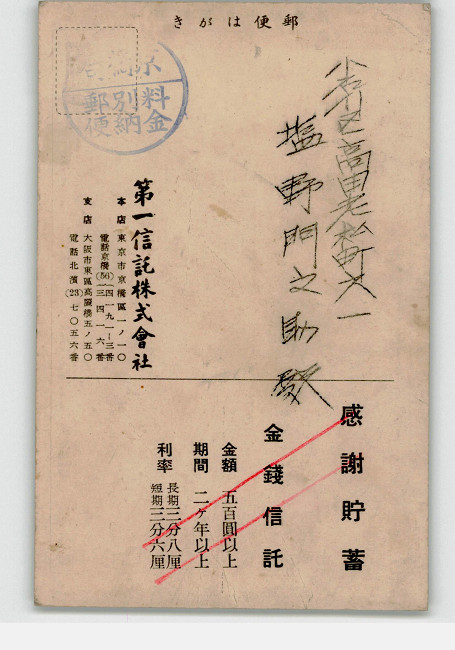 郵便はがき
料金
別納
郵便
小石川区高田老松町六一
塩野門之助殿
第一信託株式會社
本店 東京市京橋區一ノ一〇
電話京橋(56)四一九一―三番
三四一六番
支店 大阪市東區高麗橋五ノ五〇
電話北濱(23)七〇五六番
感謝貯蓄
金錢信託
金額 五百圓以上
期間 二ヶ年以上
利率 長期三分八厘
短期三分六厘